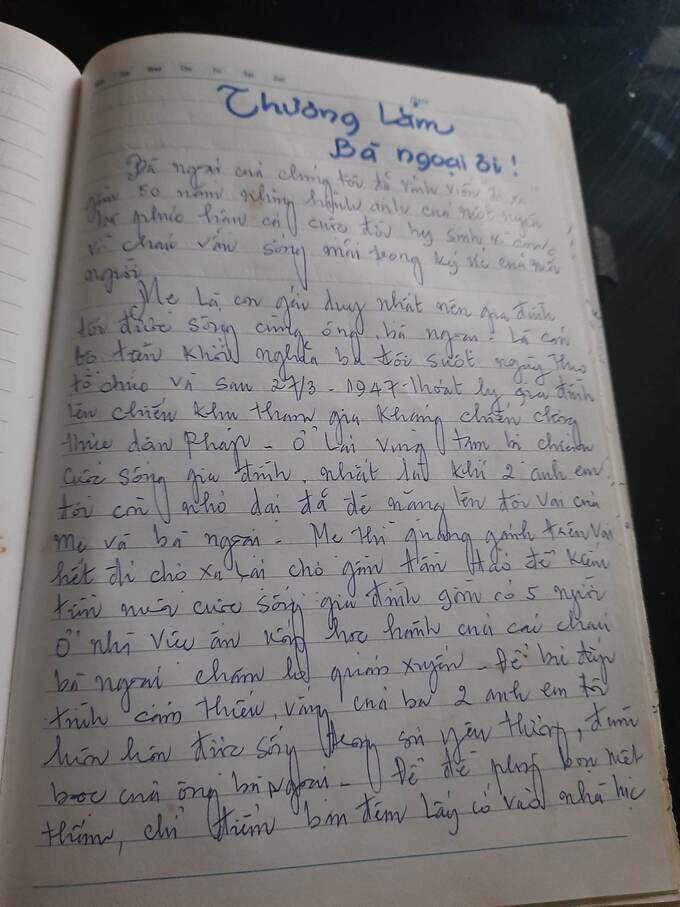 Thương Lắm
Bà ngoại ơi!
Bà ngoại của chúng tôi đã vĩnh viễn đi xa
gần 50 năm nhưng hình ảnh của một người
phúc hậu cả cuộc đời hy sinh vì con,
vì cháu vẫn sống mãi trong ký ức của mỗi
người.
Mẹ là con gái duy nhất nên gia đình
tôi được sống cùng ông, bà ngoại. Là cán
bộ tiền khởi nghĩa ba tôi suốt ngày theo
tổ chức và sau 27/3-1947 thoát ly gia đình
lên chiến khu tham gia kháng chiến chống
thực dân Pháp - Ở lại vùng tạm bị chiếm
cuộc sống gia đình, nhất là khi 2 anh em
tôi còn nhỏ dại đã đè nặng lên đôi vai của
mẹ và bà ngoại. Mẹ thì quang gánh trên vai
hết đi chợ xa lại chợ gần tần tảo để kiếm
tiền nuôi cuộc sống gia đình gồm có 5 người
Ở nhà việc ăn uống học hành của các cháu
bà ngoại chăm lo quán xuyến - Để bù đắp
tình cảm thiếu vắng của ba 2 anh em tôi
luôn luôn được sống trong sự yêu thương, đùm
bọc của ông bà ngoại - Để đề phòng bọn mật
thám, chỉ điểm ban đêm lấy cớ vào nhà lục